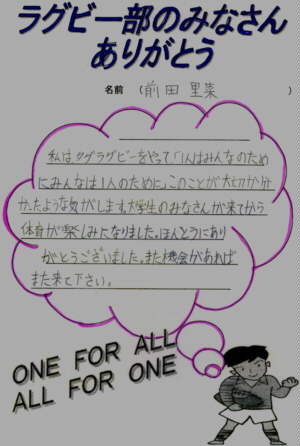 ラグビー部のみなさん
ありがとう
名前 (前田 里菜)
私はタグラグビーをやって「1人はみんなのため
にみんなは1人のために」このことが大切か分
かったような気がします。大学生のみなさんが来てから
体育が楽しみになりました。ほんとうにあり
がとうございました。また機会があれば
また来て下さい。
ONE FOR ALL
ALL FOR ONE